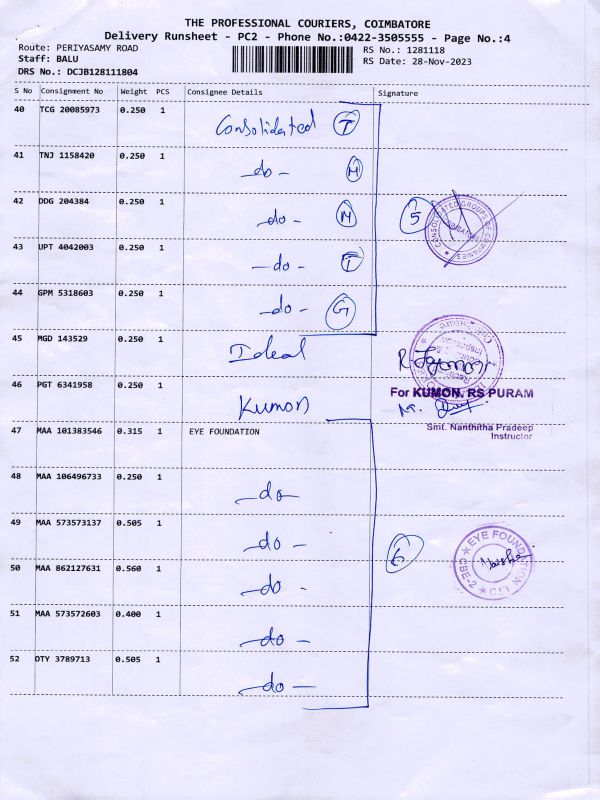 THE PROFESSIONAL COURIERS, COIMBATORE
Delivery Runsheet - PC2 - Phone No.:0422-3505555 - Page No.:4
Route: PERIYASAMY ROAD
RS No.: 1281118
Staff: BALU
RS Date: 28-Nov-2023
DRS No.: DCJB128111804
S No Consignment No Weight PCS Consignee Details Signature
40 TCG 20085973 0.250 1 Consolidated T
41 TNJ 1158420 0.250 1 -do- M
42 DDG 204384 0.250 1 -do- M 5
CONSOLIDATED GROUPS OF COMPANIES
43 UPT 4042003 0.250 1 -do- T
44 GPM 5318603 0.250 1 -do- G
45 MGD 143529 0.250 1 Ideal
46 PGT 6341958 0.250 1 Kumon
For KUMON, RS PURAM
Smt. Nanthitha Pradeep
Instructor
47 MAA 101383546 0.315 1 EYE FOUNDATION
48 MAA 106496733 0.250 1 -do-
49 MAA 573573137 0.505 1 -do-
50 MAA 862127631 0.560 1 -do- 6
EYE FOUNDATION
CBE-2
51 MAA 573572603 0.400 1 -do-
52 OTY 3789713 0.505 1 -do-